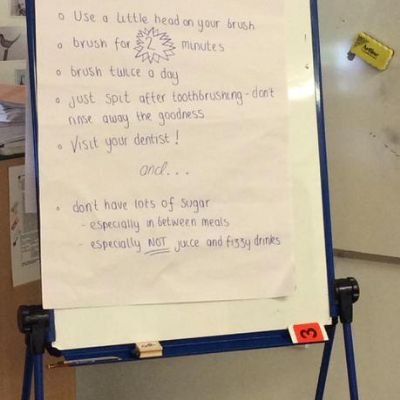 Use a little head on your brush
brush for 2 minutes
brush twice a day
just spit after toothbrushing - don't
rinse away the goodness
Visit your dentist!
and...
don't have lots of sugar
- especially in between meals
- especially NOT juice and fizzy drinks
3